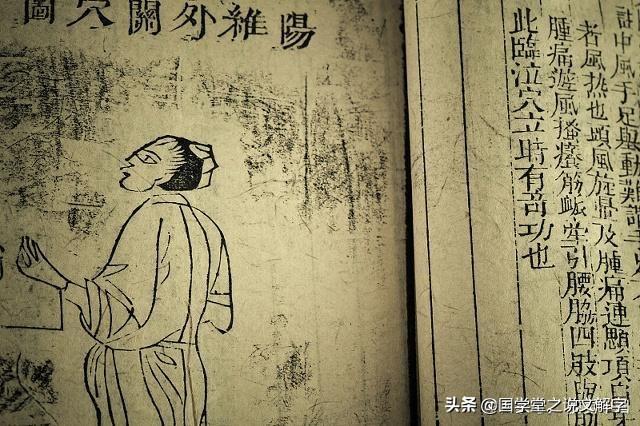 陽維外關穴圖
中風手足舉動難
若風热也頭風旋暈及腫痛連顋項
腫痛遊風搔癢筋牽引腰脇四肢
此臨泣穴立時有奇功也
头条 @国学堂之说文解字